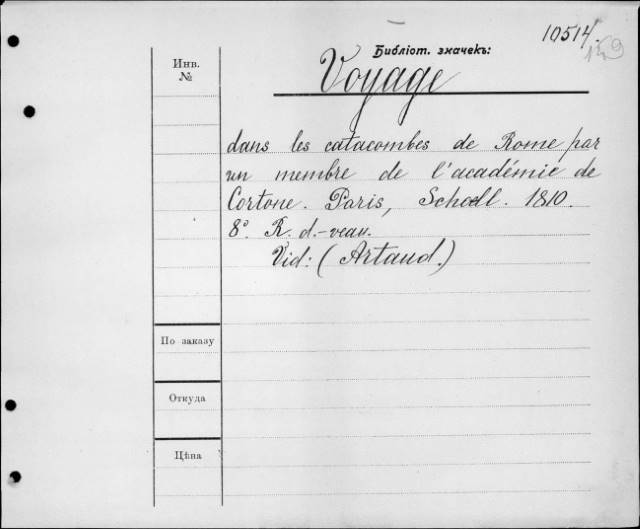 10514.
159
Библіот. значекъ:
Voyage
Инв.
№
dans les catacombes de Rome par
un membre de l'académie de
Cortone. Paris, Schoell. 1810.
8° R. d.-veau.
Vid: (Artaud.)
По заказу
Откуда
Цѣна